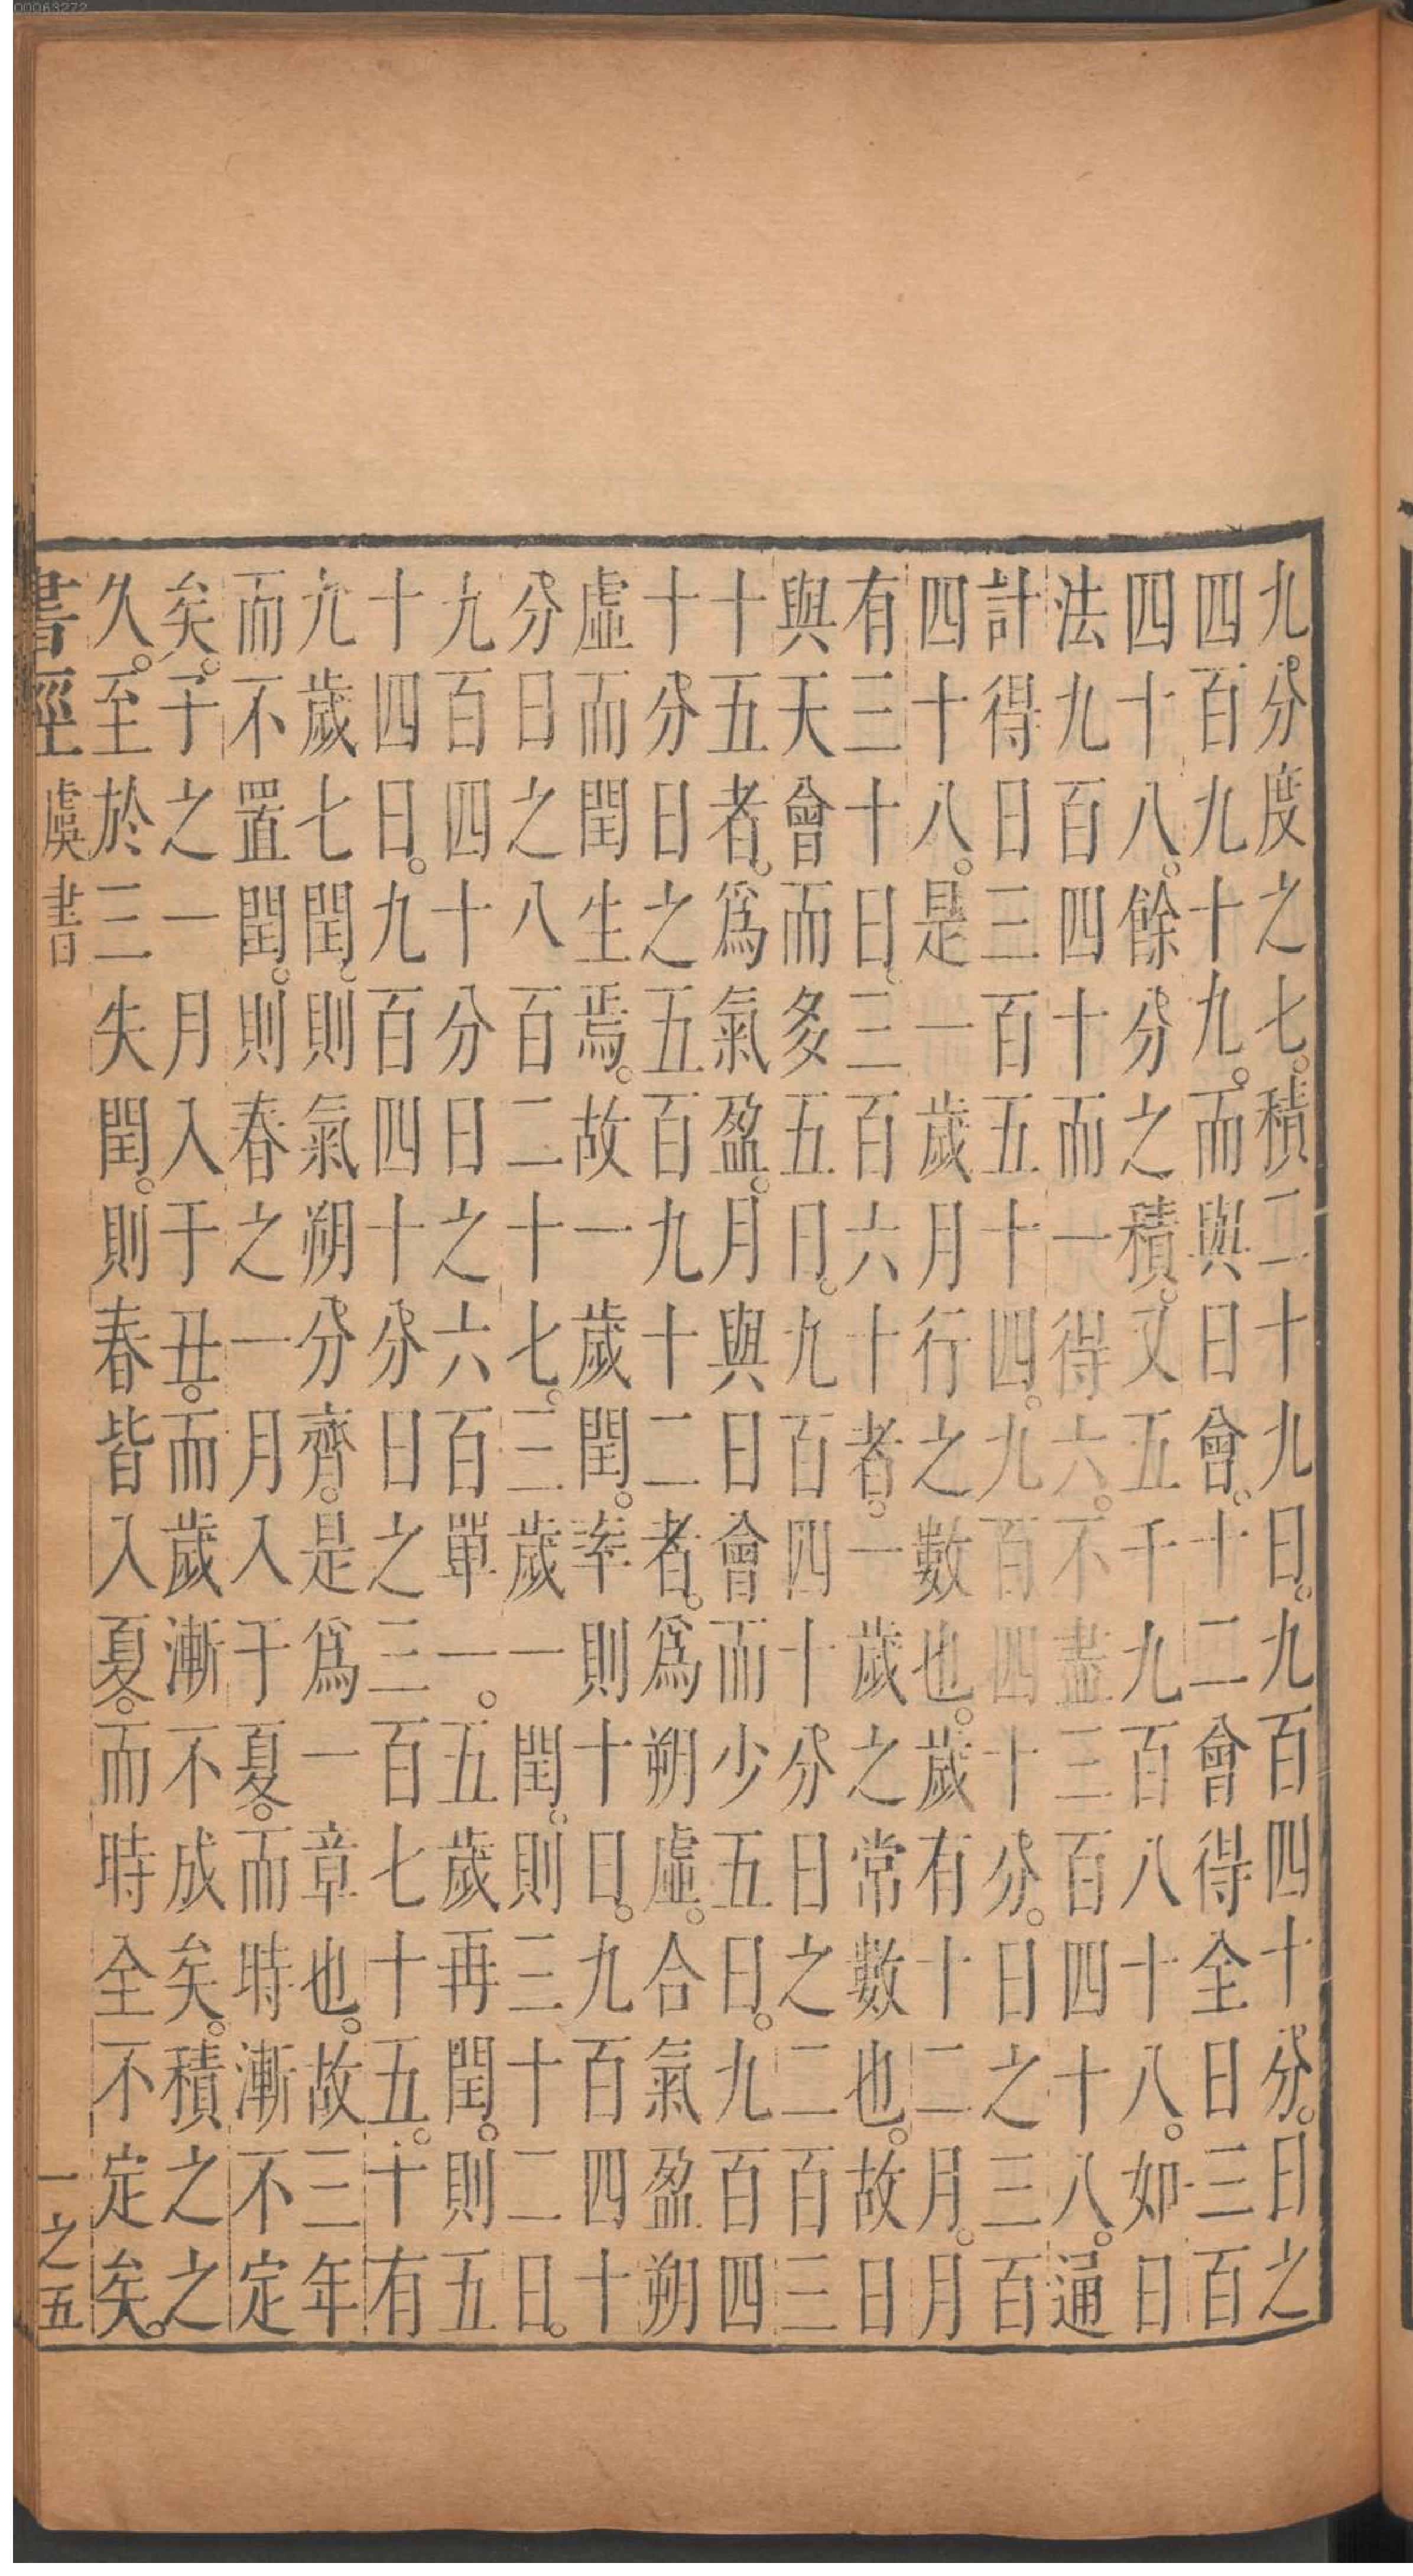 00063272
九分度之七。積二十九日。九百四十分。日之
四百九十九。而與日會。十二會得全日三百
四十八。餘分之積。又五千九百八十八。如日
法九百四十而一得六。不盡三百四十八。通
計得日三百五十四。九百四十分。日之三百
四十八。是一歲月行之數也。歲有十二月。月
有三十日。三百六十者。一歲之常數也。故日
與天會而多五日。九百四十分日之二百三
十五者。爲氣盈。月與日會而少五日。九百四
十分日之五百九十二者。爲朔虛。合氣盈朔
虛而閏生焉。故一歲閏。率則十日。九百四十
分日之八百二十七。三歲一閏。則三十二日。
九百四十分日之六百單一。五歲再閏。則五
十四日。九百四十分日之三百七十五。十有
九歲七閏。則氣朔分齊。是爲一章也。故三年
而不置閏。則春之一月入于夏。而時漸不定
矣。子之一月入于丑。而歲漸不成矣。積之之
久。至於三失閏。則春皆入夏。而時全不定矣。
書經 虞書 一之五